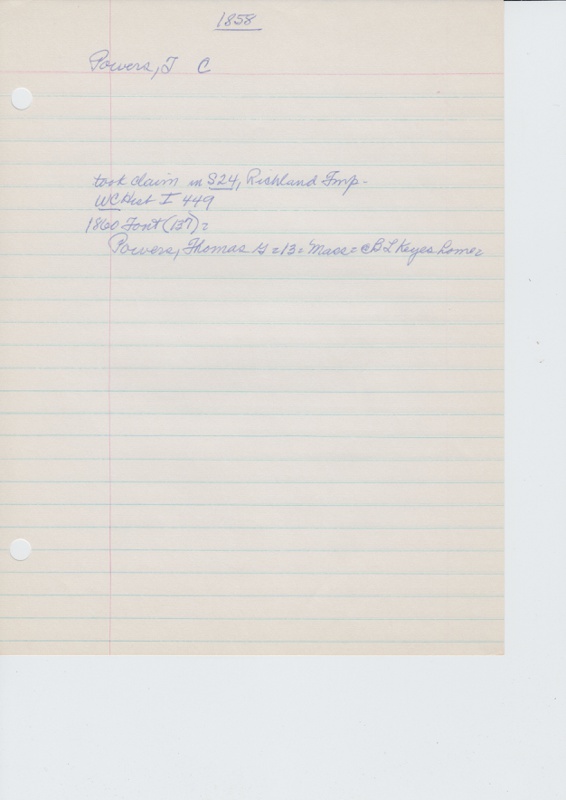 1858
Powers, T C
took claim in S24, Richland Tmp-
WCHist I 449
1860 Font (137)=
Powers, Thomas G=13=Mass=@B L Keyes home=